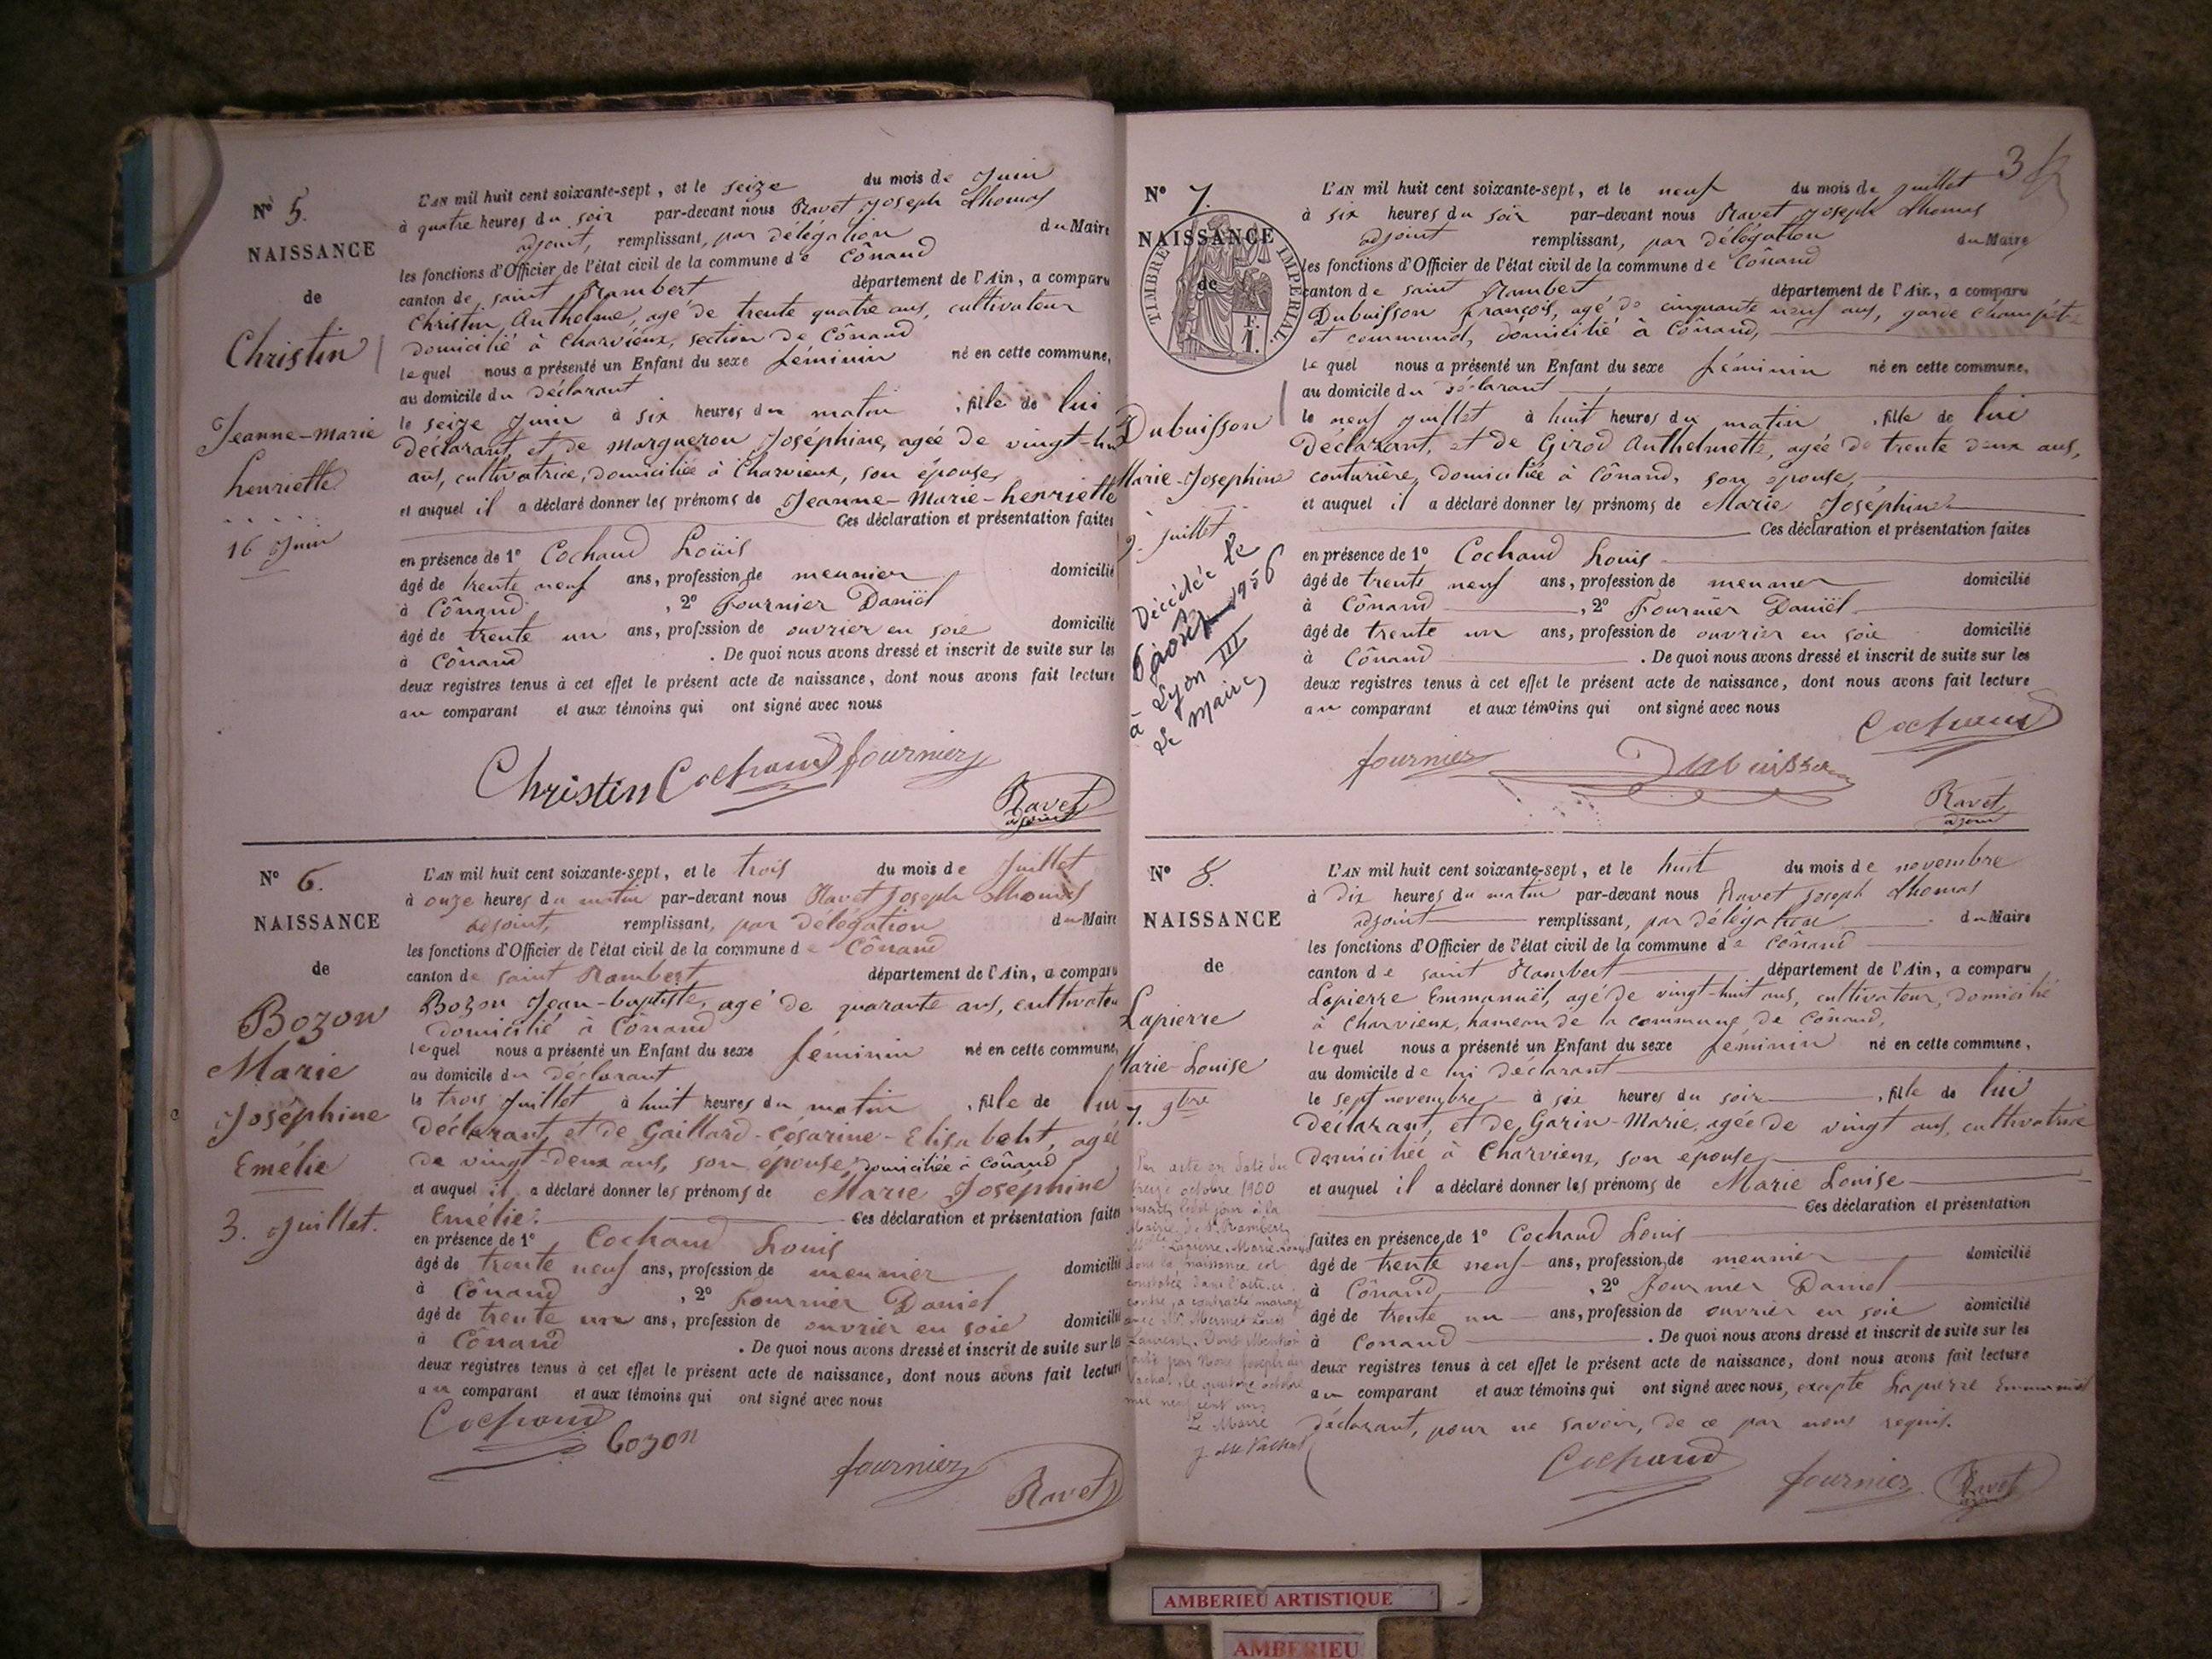 N° 5.
NAISSANCE
de
Christin
Jeanne-Marie
henriette
16 Juin
L'AN mil huit cent soixante-sept, et le seize du mois de Juin
à quatre heures du soir par-devant nous Ravet Joseph Thomas
adjoint, remplissant, par délégation du Maire
les fonctions d'Officier de l'état civil de la commune de Cônand
canton de saint Rambert département de l'Ain, a comparu
Christin Anthelme, agé de trente quatre ans, cultivateur
domicilié à Charvieux, section de Cônand
lequel nous a présenté un Enfant du sexe féminin né en cette commune,
au domicile du déclarant
le seize Juin à six heures du matin, fille de lui
déclarant, et de Margueron Joséphine, agée de vingt-
ans, cultivatrice, domiciliée à Charvieux, son épouse,
et auquel il a déclaré donner les prénoms de Jeanne-Marie-henriette
Ces déclaration et présentation faites
en présence de 1° Cochand Louis
âgé de trente neuf ans, profession de meunier domicilié
à Cônand, 2° Fournier Daniël
âgé de trente un ans, profession de ouvrier en soie domicilié
à Cônand. De quoi nous avons dressé et inscrit de suite sur les
deux registres tenus à cet effet le présent acte de naissance, dont nous avons fait lecture
au comparant et aux témoins qui ont signé avec nous
Christin Cochand fournier
Ravet
adjoint
N° 6.
NAISSANCE
de
Bozon
Marie
Joséphine
Emélie
3. Juillet.
L'AN mil huit cent soixante-sept, et le trois du mois de Juillet
à onze heures du matin par-devant nous Ravet Joseph Thomas
adjoint, remplissant, par délégation du Maire
les fonctions d'Officier de l'état civil de la commune de Cônand
canton de saint Rambert département de l'Ain, a comparu
Bozon Jean-baptiste, agé de quarante ans, cultivateu
domicilié à Cônand
lequel nous a présenté un Enfant du sexe féminin né en cette commune,
au domicile du déclarant
le trois Juillet à huit heures du matin, fille de lui
déclarant, et de Gaillard-Césarine-Elisabeht, agée
de vingt-deux ans, son épouse, domiciliée à Cônand
et auquel il a déclaré donner les prénoms de Marie Joséphine
Emélie. Ces déclaration et présentation faites
en présence de 1° Cochand Louis
âgé de trente neuf ans, profession de meunier domicilié
à Cônand, 2° Fournier Daniel
âgé de trente un ans, profession de ouvrier en soie domicilié
à Cônand. De quoi nous avons dressé et inscrit de suite sur les
deux registres tenus à cet effet le présent acte de naissance, dont nous avons fait lecture
au comparant et aux témoins qui ont signé avec nous
Cochand
bozon
fournier
Ravet
3
N° 7.
TIMBRE IMPERIAL.
F.
1.
NAISSANCE
de
Dubuisson
Marie-Josephine
9. juillet
Décédée le
6 août 1956
à Lyon III
Le Maire,
L'AN mil huit cent soixante-sept, et le neuf du mois de juillet
à six heures du soir par-devant nous Ravet Joseph Thomas
adjoint remplissant, par délégation du Maire
les fonctions d'Officier de l'état civil de la commune de Cônand
canton de saint Rambert département de l'Ain, a comparu
Dubuisson françois, agé de cinquante neuf ans, garde champêt
et communal, domicilié à Cônand,
lequel nous a présenté un Enfant du sexe féminin né en cette commune,
au domicile du déclarant
le neuf juillet à huit heures du matin, fille de lui
déclarant, et de Girod Anthelmette, agée de trente deux ans,
couturière, domiciliée à Cônand, son épouse,
et auquel il a déclaré donner les prénoms de Marie Joséphine
Ces déclaration et présentation faites
en présence de 1° Cochand Louis
âgé de trente neuf ans, profession de meunier domicilié
à Cônand, 2° Fournier Daniël
âgé de trente un ans, profession de ouvrier en soie domicilié
à Cônand. De quoi nous avons dressé et inscrit de suite sur les
deux registres tenus à cet effet le présent acte de naissance, dont nous avons fait lecture
au comparant et aux témoins qui ont signé avec nous
Cochand
fournier Dubuisson
Ravet
adjoint
N° 8.
NAISSANCE
de
Lapierre
Marie-Louise
7. 9bre
Par acte en date du
treize octobre 1900
inscrit le jour à la
Mairie de St Rambert,
Lapierre Marie Louise
dont la naissance est
constatée dans l'acte ci
contre, a contracté mariage
avec Mermet Louis
Laurent. Dont Mention
faite par Nous Joseph du
Vachat le quatorze octobre
mil neuf cent
Le Maire
J. du Vachat
L'AN mil huit cent soixante-sept, et le huit du mois de novembre
à dix heures du matin par-devant nous Ravet Joseph Thomas
adjoint remplissant, par délégation du Maire
les fonctions d'Officier de l'état civil de la commune de Cônand
canton de saint Rambert département de l'Ain, a comparu
Lapierre Emmanuël, agé de vingt-huit ans, cultivateur, domicilié
à Charvieux, hameau de la commune de Cônand,
lequel nous a présenté un Enfant du sexe féminin né en cette commune,
au domicile de lui déclarant
le sept novembre à six heures du soir, fille de lui
déclarant, et de Garin-Marie, agée de vingt ans, cultivatrice
domiciliée à Charvieux, son épouse,
et auquel il a déclaré donner les prénoms de Marie Louise
Ces déclaration et présentation
faites en présence de 1° Cochand Louis
âgé de trente neuf ans, profession de meunier domicilié
à Cônand, 2° Fournier Daniel
âgé de trente un ans, profession de ouvrier en soie domicilié
à Conand. De quoi nous avons dressé et inscrit de suite sur les
deux registres tenus à cet effet le présent acte de naissance, dont nous avons fait lecture
au comparant et aux témoins qui ont signé avec nous, excepté Lapierre Emmanuël
déclarant, pour ne savoir, de ce par nous requis.
Cochand
fournier Ravet
adjoint
AMBERIEU ARTISTIQUE
AMBERIEU